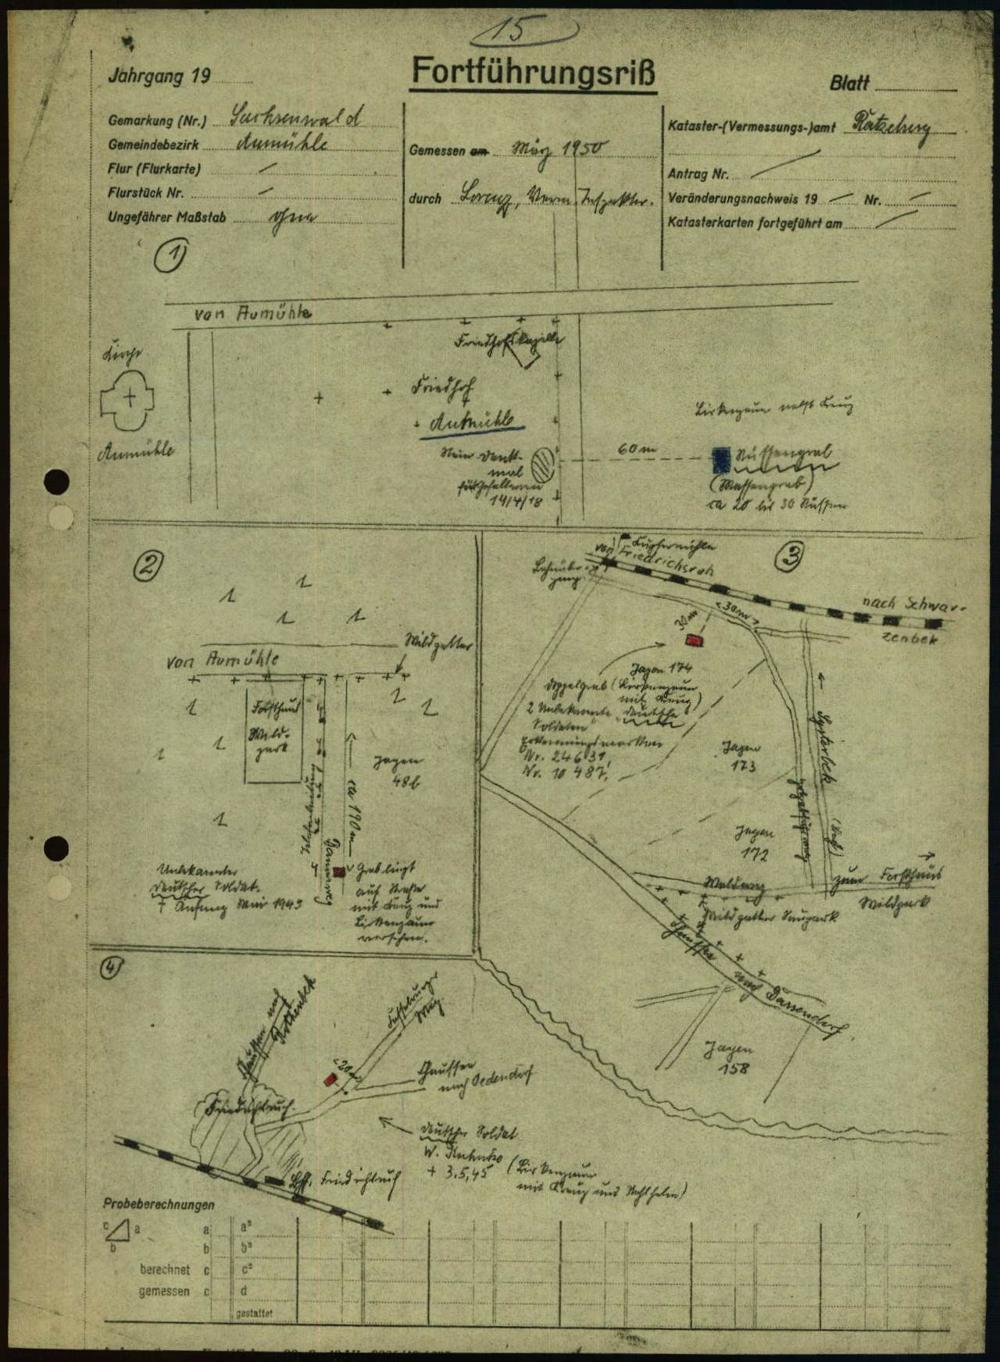 15
Jahrgang 19
Fortführungsriß
Blatt
Gemarkung (Nr.) Sachsenwald
Gemeindebezirk Aumühle
Flur (Flurkarte) /
Flurstück Nr. —
Ungefährer Maßstab ohne
Gemessen am März 1950
durch Lorenz, Verm. Inspektor.
Kataster-(Vermessungs-)amt Ratzeburg
Antrag Nr.
Veränderungsnachweis 19 — Nr. —
Katasterkarten fortgeführt am
1
von Aumühle
Kirche
Aumühle
Friedhofskapelle
Friedhof
Aumühle
Stein Denk-
mal
für Gefallene
14/18
60 m
Birkenzaun nebst Kreuz
Russengrab
(Massengrab)
ca 20 bis 30 Russen
2
von Aumühle
Wildgatter
Forsthaus
Wild-
park
Jagen
48b
ca 190 m
Unbekannter
deutscher Soldat.
† Anfang Mai 1945
Grab liegt
auf
mit Kreuz und
Birkenzaun
versehen.
3
von Kupfermühle
Friedrichsruh
nach Schwar-
zenbek
30 m
30 m
Jagen 174
Doppelgrab (Birkenzaun
mit Kreuz)
2 Unbekannte deutsche
Soldaten
Erkennungsmarken
Nr. 24631,
Nr. 10487,
Jagen
173
Jagen
172
zum Forsthaus
Wildpark
Wildgatter Saupark
Chaussee nach Dassendorf
Jagen
158
4
Chaussee nach
Rothenbek
20 m
Chaussee
nach Oedendorf
Friedrichsruh
Bhf. Friedrichsruh
deutscher Soldat
+ 3.5.45 (Birkenzaun
mit Kreuz und Stahlhelm)
Probeberechnungen
c a
b
a a²
b b²
berechnet c c²
gemessen c d
gestattet